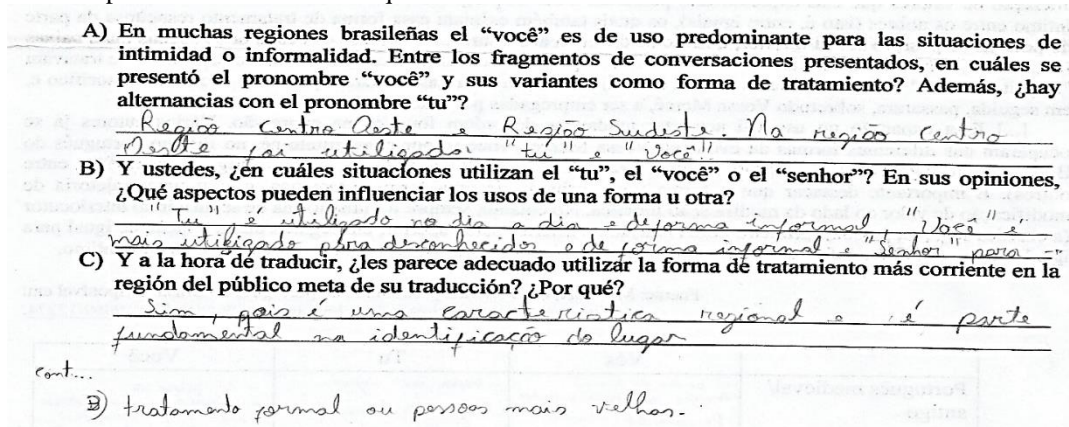 A) En muchas regiones brasileñas el “você” es de uso predominante para las situaciones de
intimidad o informalidad. Entre los fragmentos de conversaciones presentados, en cuáles se
presentó el pronombre “você” y sus variantes como forma de tratamiento? Además, ¿hay
alternancias con el pronombre “tu”?
Região Centro Oeste e Região Sudeste. Na região Centro
Oeste foi utilizado "tu" e "você".
B) Y ustedes, ¿en cuáles situaciones utilizan el “tu”, el “você” o el “senhor”? En sus opiniones,
¿Qué aspectos pueden influenciar los usos de una forma u otra?
"Tu" é utilizado no dia a dia e de forma informal, "Você" é
mais utilizado para desconhecidos e de forma informal e "Senhor" para -
C) Y a la hora de traducir, ¿les parece adecuado utilizar la forma de tratamiento más corriente en la
región del público meta de su traducción? ¿Por qué?
Sim, pois é uma característica regional e é parte
fundamental na identificação do lugar
cont....
B) tratamento formal ou pessoas mais velhas.